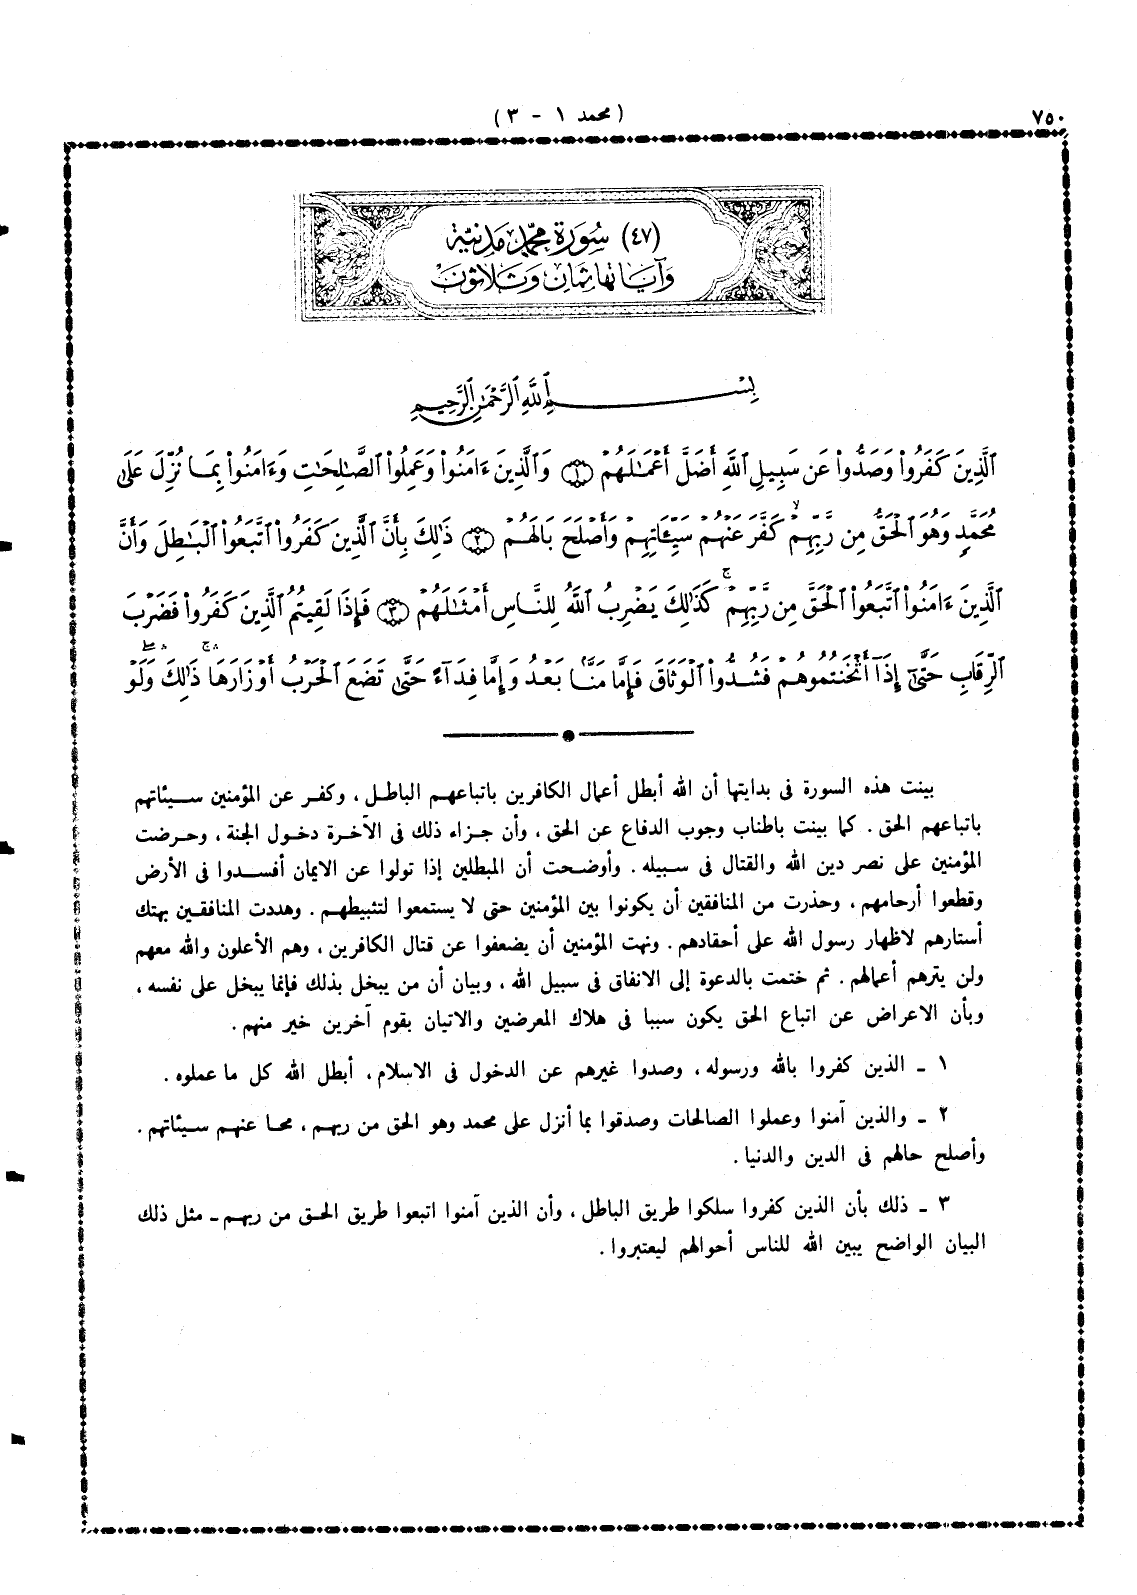 ٧٥٠
(محمد ١ - ٣)
(٤٧) سُورَة مُحَمَّد مَدنيَّة
وَآيَاتُهَا ثَمَان وَثَلَاثُونَ
بِسْمِ ٱللَّهِ ٱلرَّحْمَٰنِ ٱلرَّحِيمِ
ٱلَّذِينَ كَفَرُوا۟ وَصَدُّوا۟ عَن سَبِيلِ ٱللَّهِ أَضَلَّ أَعْمَٰلَهُمْ ۝١ وَٱلَّذِينَ ءَامَنُوا۟ وَعَمِلُوا۟ ٱلصَّٰلِحَٰتِ وَءَامَنُوا۟ بِمَا نُزِّلَ عَلَىٰ
مُحَمَّدٍ وَهُوَ ٱلْحَقُّ مِن رَّبِّهِمْ ۙ كَفَّرَ عَنْهُمْ سَيِّـَٔاتِهِمْ وَأَصْلَحَ بَالَهُمْ ۝٢ ذَٰلِكَ بِأَنَّ ٱلَّذِينَ كَفَرُوا۟ ٱتَّبَعُوا۟ ٱلْبَٰطِلَ وَأَنَّ
ٱلَّذِينَ ءَامَنُوا۟ ٱتَّبَعُوا۟ ٱلْحَقَّ مِن رَّبِّهِمْ ۚ كَذَٰلِكَ يَضْرِبُ ٱللَّهُ لِلنَّاسِ أَمْثَٰلَهُمْ ۝٣ فَإِذَا لَقِيتُمُ ٱلَّذِينَ كَفَرُوا۟ فَضَرْبَ
ٱلرِّقَابِ حَتَّىٰٓ إِذَآ أَثْخَنتُمُوهُمْ فَشُدُّوا۟ ٱلْوَثَاقَ فَإِمَّا مَنًّۢا بَعْدُ وَإِمَّا فِدَآءً حَتَّىٰ تَضَعَ ٱلْحَرْبُ أَوْزَارَهَا ۚ ذَٰلِكَ وَلَوْ
بينت هذه السورة فى بدايتها أن الله أبطل أعمال الكافرين باتباعهم الباطل، وكفر عن المؤمنين سيئاتهم
باتباعهم الحق. كما بينت باطناب وجوب الدفاع عن الحق، وأن جزاء ذلك فى الآخرة دخول الجنة، وحرضت
المؤمنين على نصر دين الله والقتال فى سبيله. وأوضحت أن المبطلين إذا تولوا عن الايمان أفسدوا فى الأرض
وقطعوا أرحامهم، وحذرت من المنافقين أن يكونوا بين المؤمنين حتى لا يستمعوا لتثبيطهم. وهددت المنافقين بهتك
أستارهم لاظهار رسول الله على أحقادهم. ونهت المؤمنين أن يضعفوا عن قتال الكافرين، وهم الأعلون والله معهم
ولن يترهم أعمالهم. ثم ختمت بالدعوة إلى الانفاق فى سبيل الله، وبيان أن من يبخل بذلك فإنما يبخل على نفسه،
وبأن الاعراض عن اتباع الحق يكون سببا فى هلاك المعرضين والاتيان بقوم آخرين خير منهم.
١ ـ الذين كفروا بالله ورسوله، وصدوا غيرهم عن الدخول فى الاسلام، أبطل الله كل ما عملوه.
٢ ـ والذين آمنوا وعملوا الصالحات وصدقوا بما أنزل على محمد وهو الحق من ربهم، محا عنهم سيئاتهم.
وأصلح حالهم فى الدين والدنيا.
٣ ـ ذلك بأن الذين كفروا سلكوا طريق الباطل، وأن الذين آمنوا اتبعوا طريق الحق من ربهم ـ مثل ذلك
البيان الواضح يبين الله للناس أحوالهم ليعتبروا.